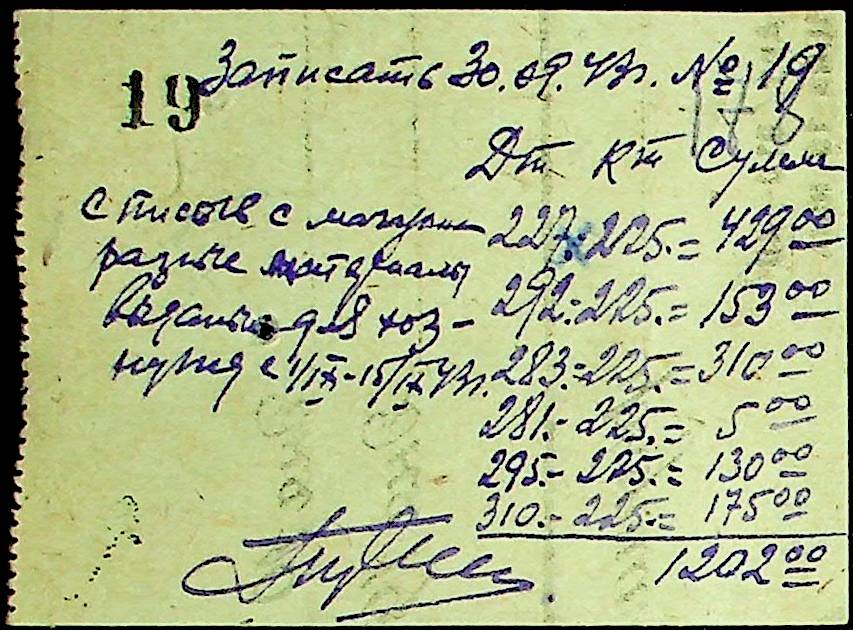 Записать 30.09.47г. № 19
19
Дт Кт Сумма
Списыв с магазина 227:-225.= 429 00
разные материалы
выданые для хоз- 292:-225.= 153 00
нужд с 1/IX-15/IX 47г. 283:-225.= 310 00
281.- 225.= 5 00
295.- 225.= 130 00
310.- 225.= 175 00
1202 00